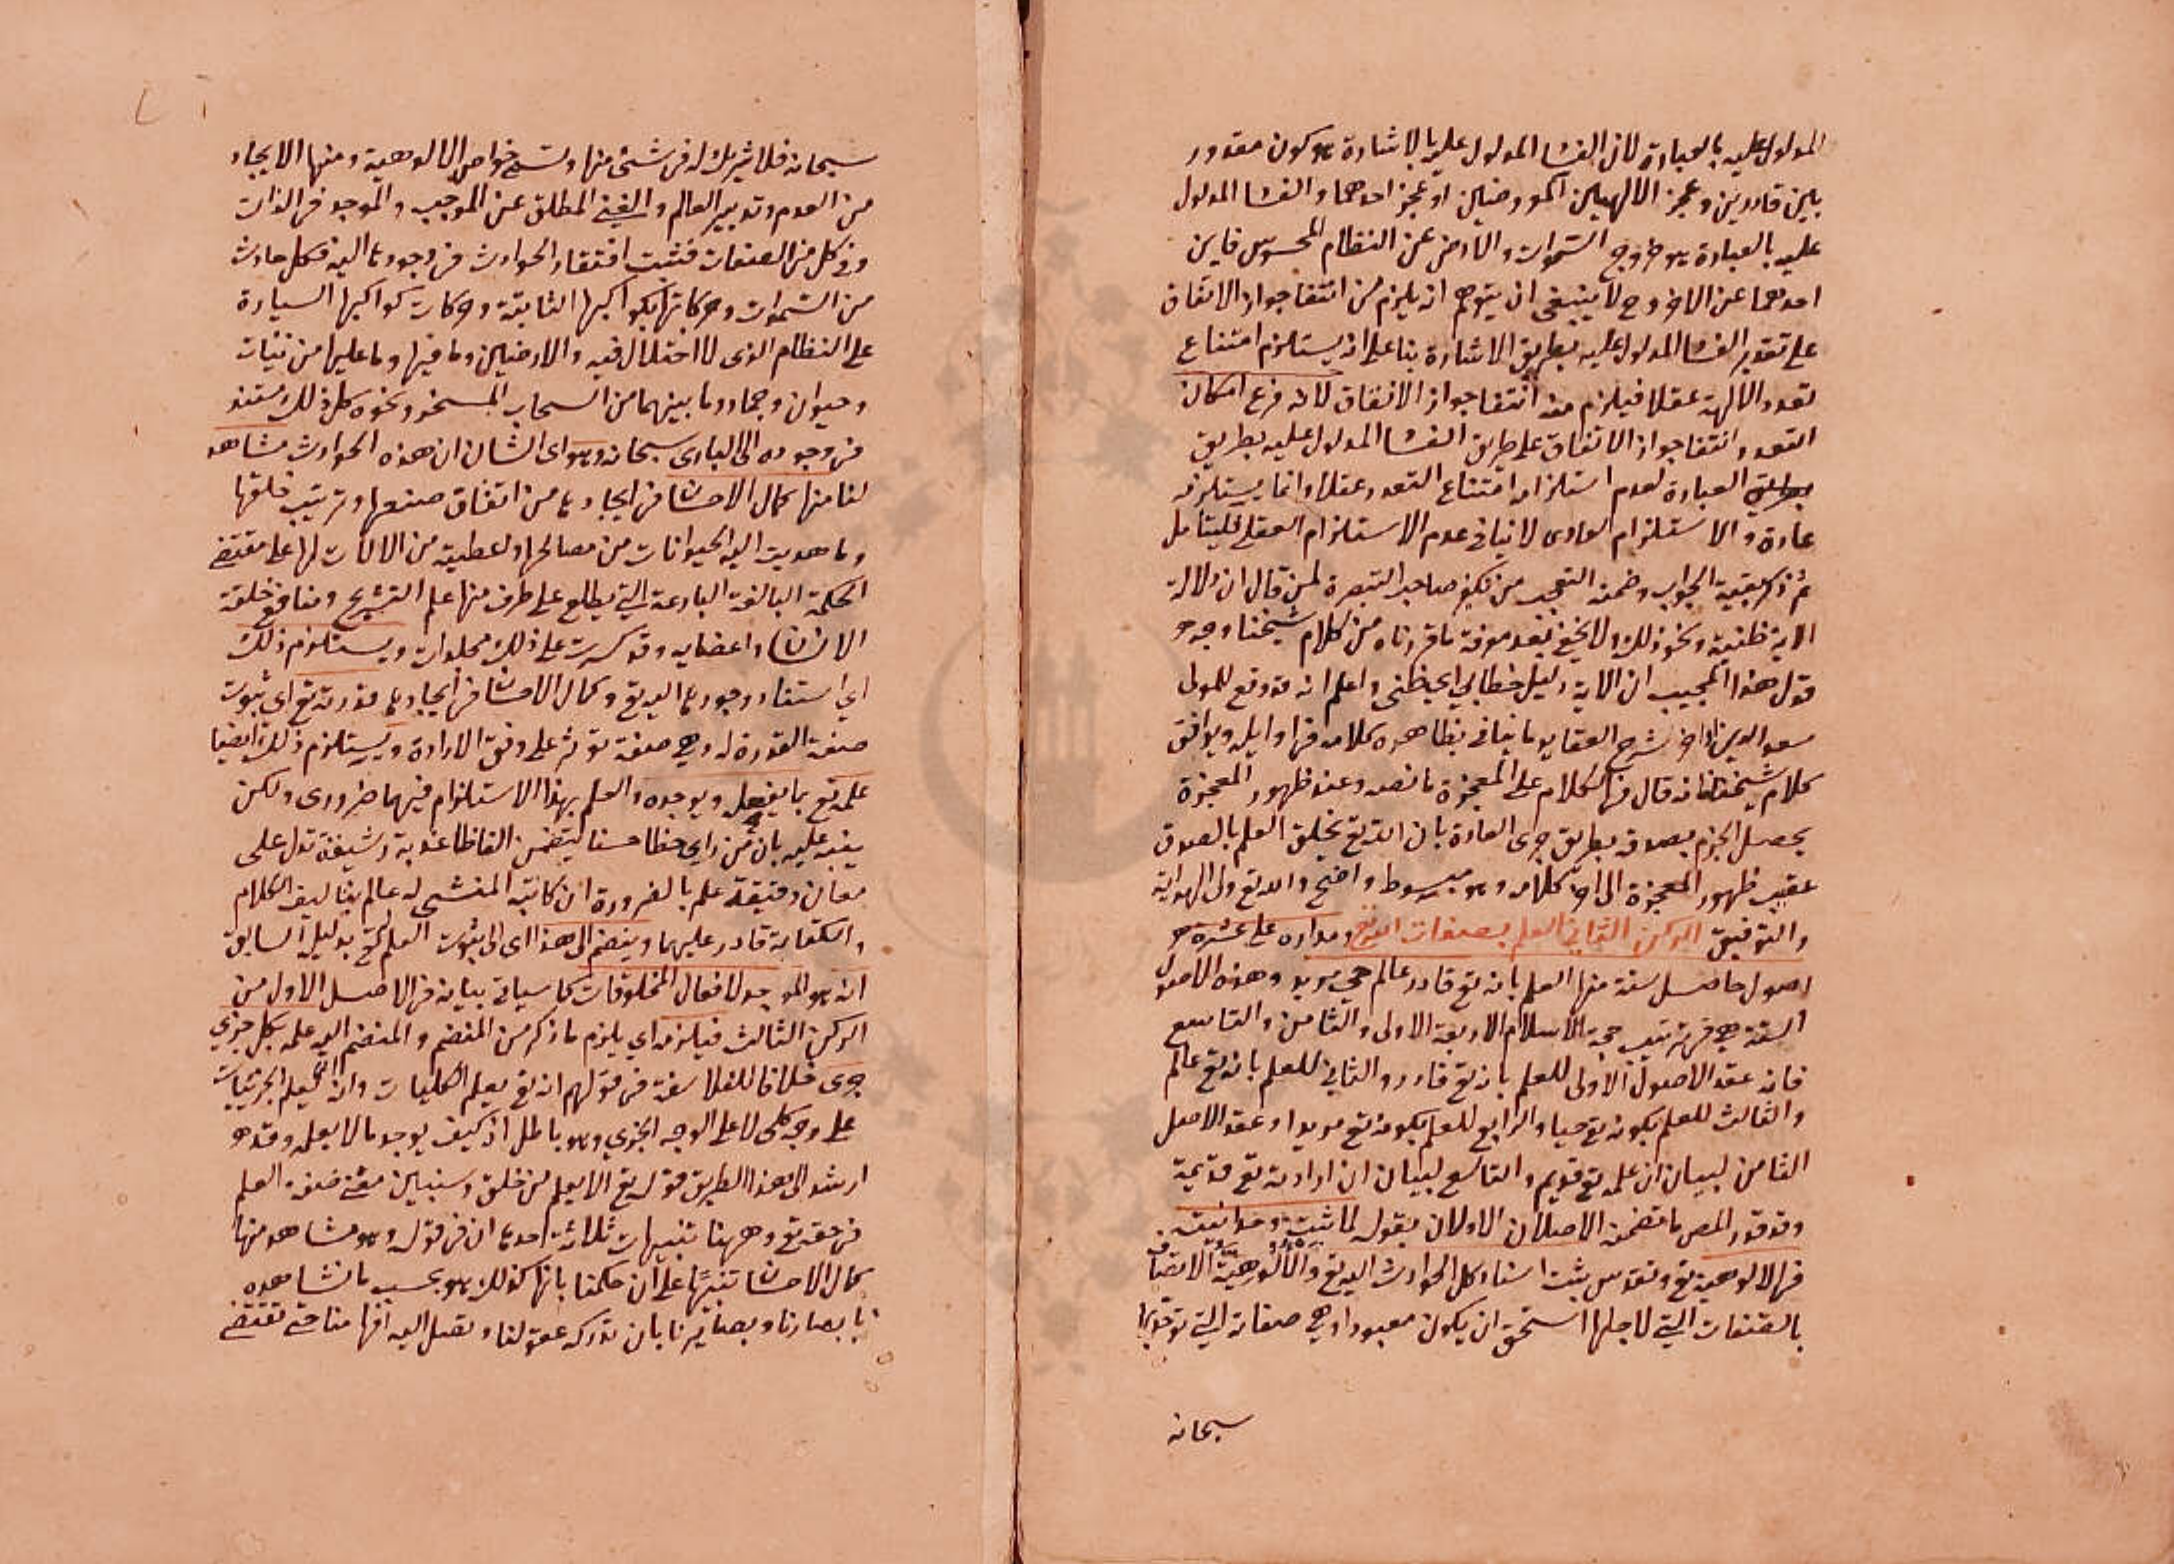 المدلول عليه بالعبارة لان الفسا المدلول عليه بالاشارة هو كون مقدور
بين قادرين وعجز الالهين المفروضين او عجز احدهما والفسا المدلول
عليه بالعبارة هو خروج السموات والارض عن النظام المحسوس فاين
احدهما عن الاخر وح لا ينبغي ان يتوهم انه يلزم من انتفا جواز الاتفاق
على تقدير الفسا المدلول عليه بطريق الاشارة بنا على انه يستلزم امتناع
تعدد الالهة عقلا فيلزم منه انتفا جواز الاتفاق لانه فرع امكان
التعدد وانتفا جواز الاتفاق على طريق الفسا المدلول عليه بطريق
بطريق العبارة لعدم استلزامه امتناع التعدد عقلا وانما يستلزمه
عادة والاستلزام العادى لا ينافى عدم الاستلزام العقلى فليتامل
ثم ذكر بقية الجواب وضمنه التعجب من تكفير صاحب التبصرة لمن قال ان دلالة
الاية ظنية ونحو ذلك ولا يخفى بعد معرفة ما قررناه من كلام شيخنا وجه
قول هذا المجيب ان الاية دليل خطابي اي ظنى واعلم انه قد وقع للمولى
سعد الدين اواخر شرح العقايد ما ينافى بظاهره كلامه فى اوايله ويوافق
كلام شيخنا فانه قال فى الكلام على المعجزة ما نصه وعند ظهور المعجزة
يحصل الجزم بصدقه بطريق جرى العادة بان الله تع يخلق العلم بالصدق
عقيب ظهور المعجزة الى اخر كلامه وهو مبسوط واضح والله تع ولى الهداية
والتوفيق الركن الثانى العلم بصفات الله تع ومداره على عشرة
اصول حاصل ستة منها العلم بانه تع قادر عالم حي مريد وهذه الاصول
الستة هي فى ترتيب حجة الاسلام الاربعة الاولى والثامن والتاسع
فانه عقد الاصول الاولى للعلم بانه تع قادر والثاني للعلم بانه تع عالم
والثالث للعلم بكونه تع حيا والرابع للعلم بكونه تع مريدا وعقد الاصل
الثامن لبيان ان علمه تع قديم والتاسع لبيان ان ارادته تع قديمة
وقد قرر المص ما تضمنه الاصلان الاولان بقوله لما ثبت وحدانيته
فى الالوهية تع وتقدس ثبت استناد كل الحوادث اليه تع والالوهية الاتصاف
بالصفات التي لاجلها استحق ان يكون معبودا وهي صفاته التي توحد بها
سبحانه
سبحانه فلا شريك له فى شئ منها وتسمى خواص الالوهية ومنها الايجاد
من العدم وتدبير العالم والغنى المطلق عن الموجب والموجد فى الذات
وفى كل من الصفات فثبت افتقار الحوادث فى وجودها اليه فكل حادث
من السموات وحركاتها بكواكبها الثابتة وحركات كواكبها السيارة
على النظام الذى لا اختلال فيه والارضين وما فيها وما عليها من نبات
وحيوان وجماد وما بينهما من السحاب المسخر ونحوه كل ذلك مستند
فى وجوده الى البارى سبحانه وهو اى الشان ان هذه الحوادث مشاهد
لنا منها كمال الاحسان فى ايجادها من اتقان صنعها وترتيب خلقها
وما هديت اليه الحيوانات من مصالحها واعطيته من الالات لها على مقتضى
الحكمة البالغة البارعة التي يطلع على طرف منها علم التشريح ومنافع خلقة
الانسان واعضايه وقد كسرت على ذلك مجلدات ويستلزم ذلك
اي استناد وجودها اليه تع وكمال الاحسان فى ايجادها قدرته تع اي ثبوت
صفة القدرة له وهي صفة تؤثر على وفق الارادة ويستلزم ذلك ايضا
علمه تع بما يفعله ويوجده والعلم بهذا الاستلزام فيهما ضرورى ولكن
ينبه عليه بان من راي خطا حسنا يتضمن الفاظا عذبة رشيقة تدل على
معان دقيقة علم بالضرورة ان كاتبه المنشى له عالم بتاليف الكلام
والكتابة قادر عليهما وينضم الى هذا اى الى ثبوت العلم له تع بدليله السابق
انه هو الموجد لافعال المخلوقات كما سياتى بيانه فى الاصل الاول من
الركن الثالث فيلزمه اي يلزم ما ذكر من المنضم والمنضم اليه علمه بكل جزي
جزى خلافا للفلاسفة فى قولهم انه تع يعلم الكليات وانه انما يعلم الجزئيات
على وجه كلى لا على الوجه الجزي وهو باطل اذ كيف يوجد ما لا يعلم وقد
ارشد الى هذا الطريق قوله تع الا يعلم من خلق وسنبين معنى صفة العلم
فى حقه تع وههنا تنبيهات ثلاثة احدها ان فى قوله وهو مشاهد منها
كمال الاحسان تنبيها على ان حكمنا بانها كذلك هو بحسب ما نشاهده
بابصارنا وبصايرنا بان تدركه عقولنا وتصل اليه افهامنا حتى تقتضى